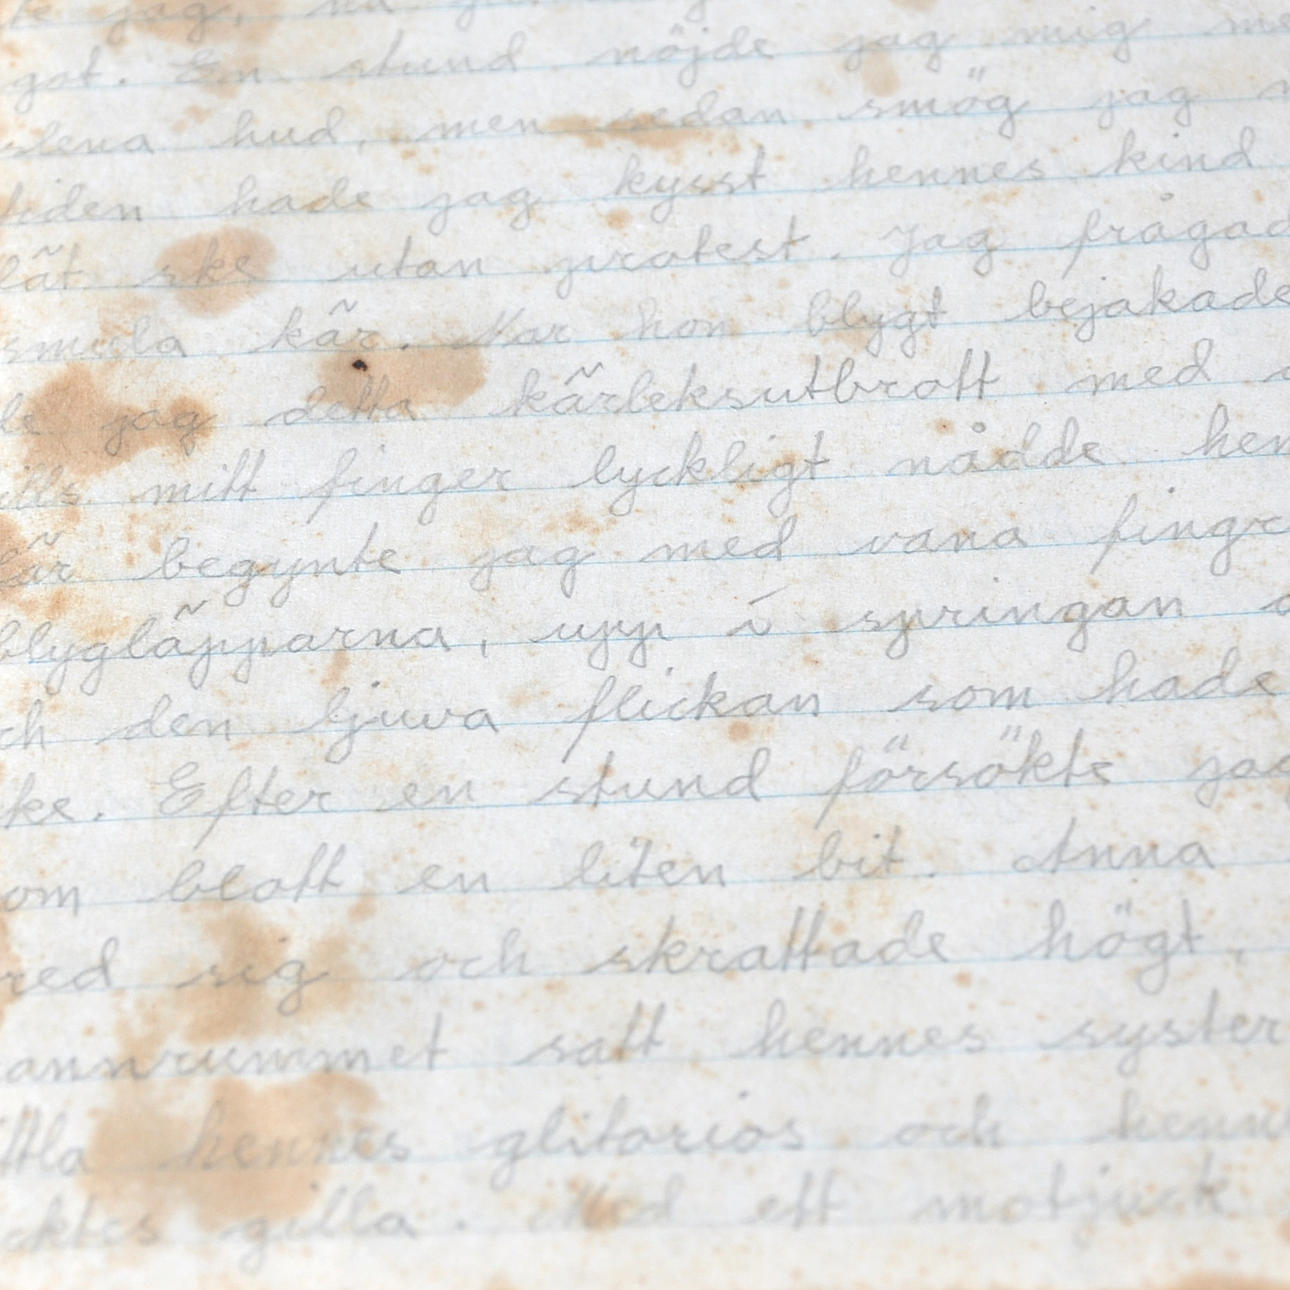 jag, nu
got. En stund nöjde jag mig me
slena hud, men sedan smög jag
tiden hade jag kysst hennes kind
lät ske utan protest. Jag frågad
smula kär. När hon blygt bejakade
de jag detta kärleksutbrott med
tills mitt finger lyckligt nådde hen
kär begynte jag med vana fingr
blygläpparna, upp i springan
ch den ljuva flickan som hade
ke. Efter en stund försökte jag
om blott en liten bit. Anna
red sig och skrattade högt.
annrummet satt hennes syster
ittla hennes glitorios och henn
cktes gilla. Med ett motjuck